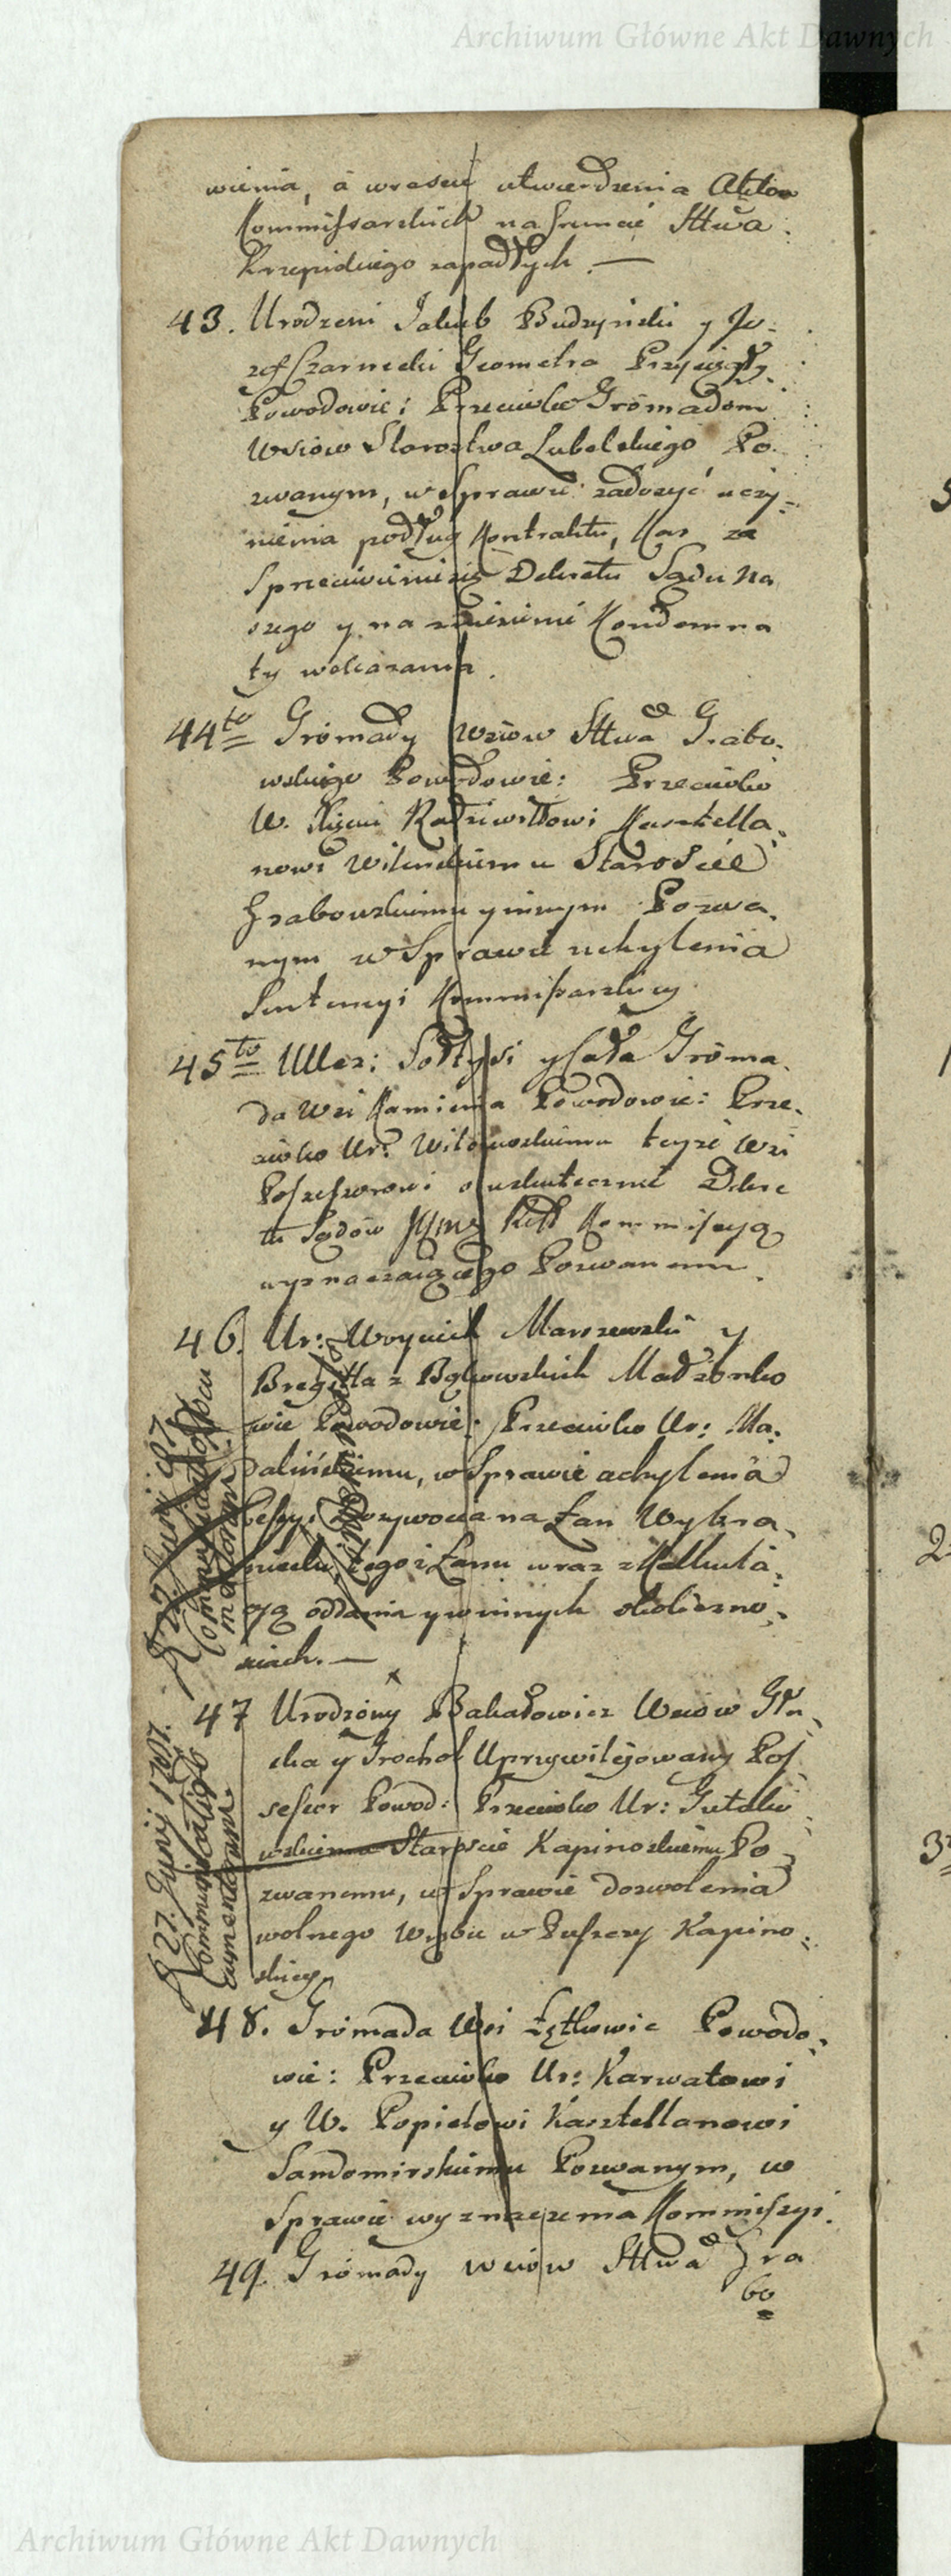 Archiwum Główne Akt Dawnych
wienia, á wrescie utwierdzenia Aktow
Kommissarskich na Gruncie Sttwa
Krzepickiego zapadłych. —
43. Urodzeni Jakub Budzyński y Jo-
zef Czarnecki Geometra Przysięgły
Powodowie: Przeciwko Gromadom
Wsiow Starostwa Lubelskiego Po-
zwanym, w Sprawie zadosyć uczy-
nienia podług Kontraktu, Kar za
Sprzeciwienie się Dekretu Sądu Na
szego y na zniesienie Kondemna
ty wskazania.
44to Gromady Wsiow Sttwa Grabo-
wskiego Powodowie: Przeciwko
W. Xięciu Radziwiłłowi Kasztella-
nowi Wilenskiemu Staroście
Grabowskiemu y innym Pozwa-
nym w Sprawie uchylenia
Sentencyi Kommissarskiey
45to Sołtysi y cała Groma-
da Wsi Kamienia Powodowie: Prze-
ciwko Ur: teyże Wsi
Possessorowi o uskutecznie Dekre
tu Sądów Kommissyą
wyznaczaiącego Pozwanemu.
46. Ur: Woyciech Marszewski y
Bregitta z Bąkowskich Małżonko
wie Powodowie: Przeciwko Ur: Ma-
dalińskiemu, w Sprawie uchylenia
Dożywocia na Łan Wybra-
niecki, tegoż Łanu wraz z Kalkula-
cyą oddania y w innych okoliczno-
sciach. —
47 Urodzony Bakałowicz Wsiow
ska y Grochol Uprzywilejowany Pos
sessor Powod: Przeciwko Ur: Gutako
wskiemu Staroscie Kapinoskiemu Po-
zwanemu, w Sprawie dozwolenia
wolnego Wrębu w Puszczy Kapino-
skiey
48. Gromada Wsi Łętkowic Powodo-
wie: Przeciwko Ur: Karwatowi
y W. Popielowi Kasztellanowi
Sandomirskiemu Pozwanym, w
Sprawie wyznaczenia Kommissyi.
49. Gromady Wsiow Sttwa Gra
bo
27. Junij 1787.
Archiwum Główne Akt Dawnych